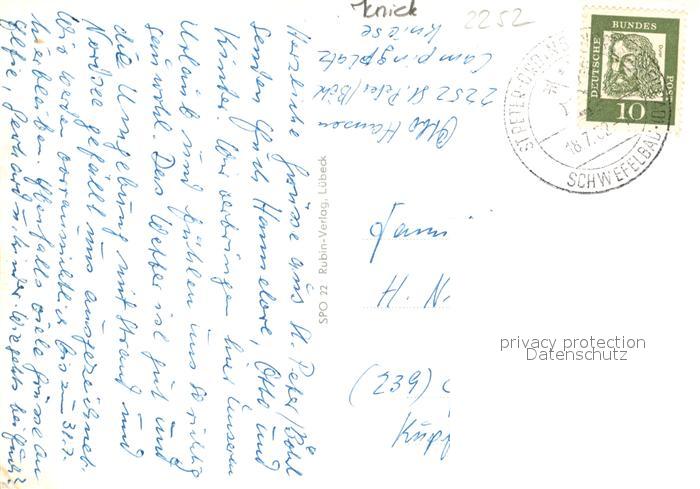 Knick
2252
Otto Hansen
2252 St. Peter/Böhl
Campingplatz
Herzliche Grüsse aus St. Peter/Böhl
senden Euch Hannelore, Otto und
Kinder. Wir verbringen hier unseren
Urlaub und fühlen uns so richtig
sauwohl. Das Wetter ist gut und
die Umgebung mit Strand und
Nordsee gefällt uns ausgezeichnet.
Wir werden voraussichtlich bis zum 31.7.
hierbleiben. Ebenfalls viele Grüsse an
SPO 22 Rubin-Verlag, Lübeck
DEUTSCHE BUNDES POST
10
ST. PETER-ORDING
18.7.62
SCHWEFELBAD
Fami
H. N.
(239)
privacy protection
Datenschutz